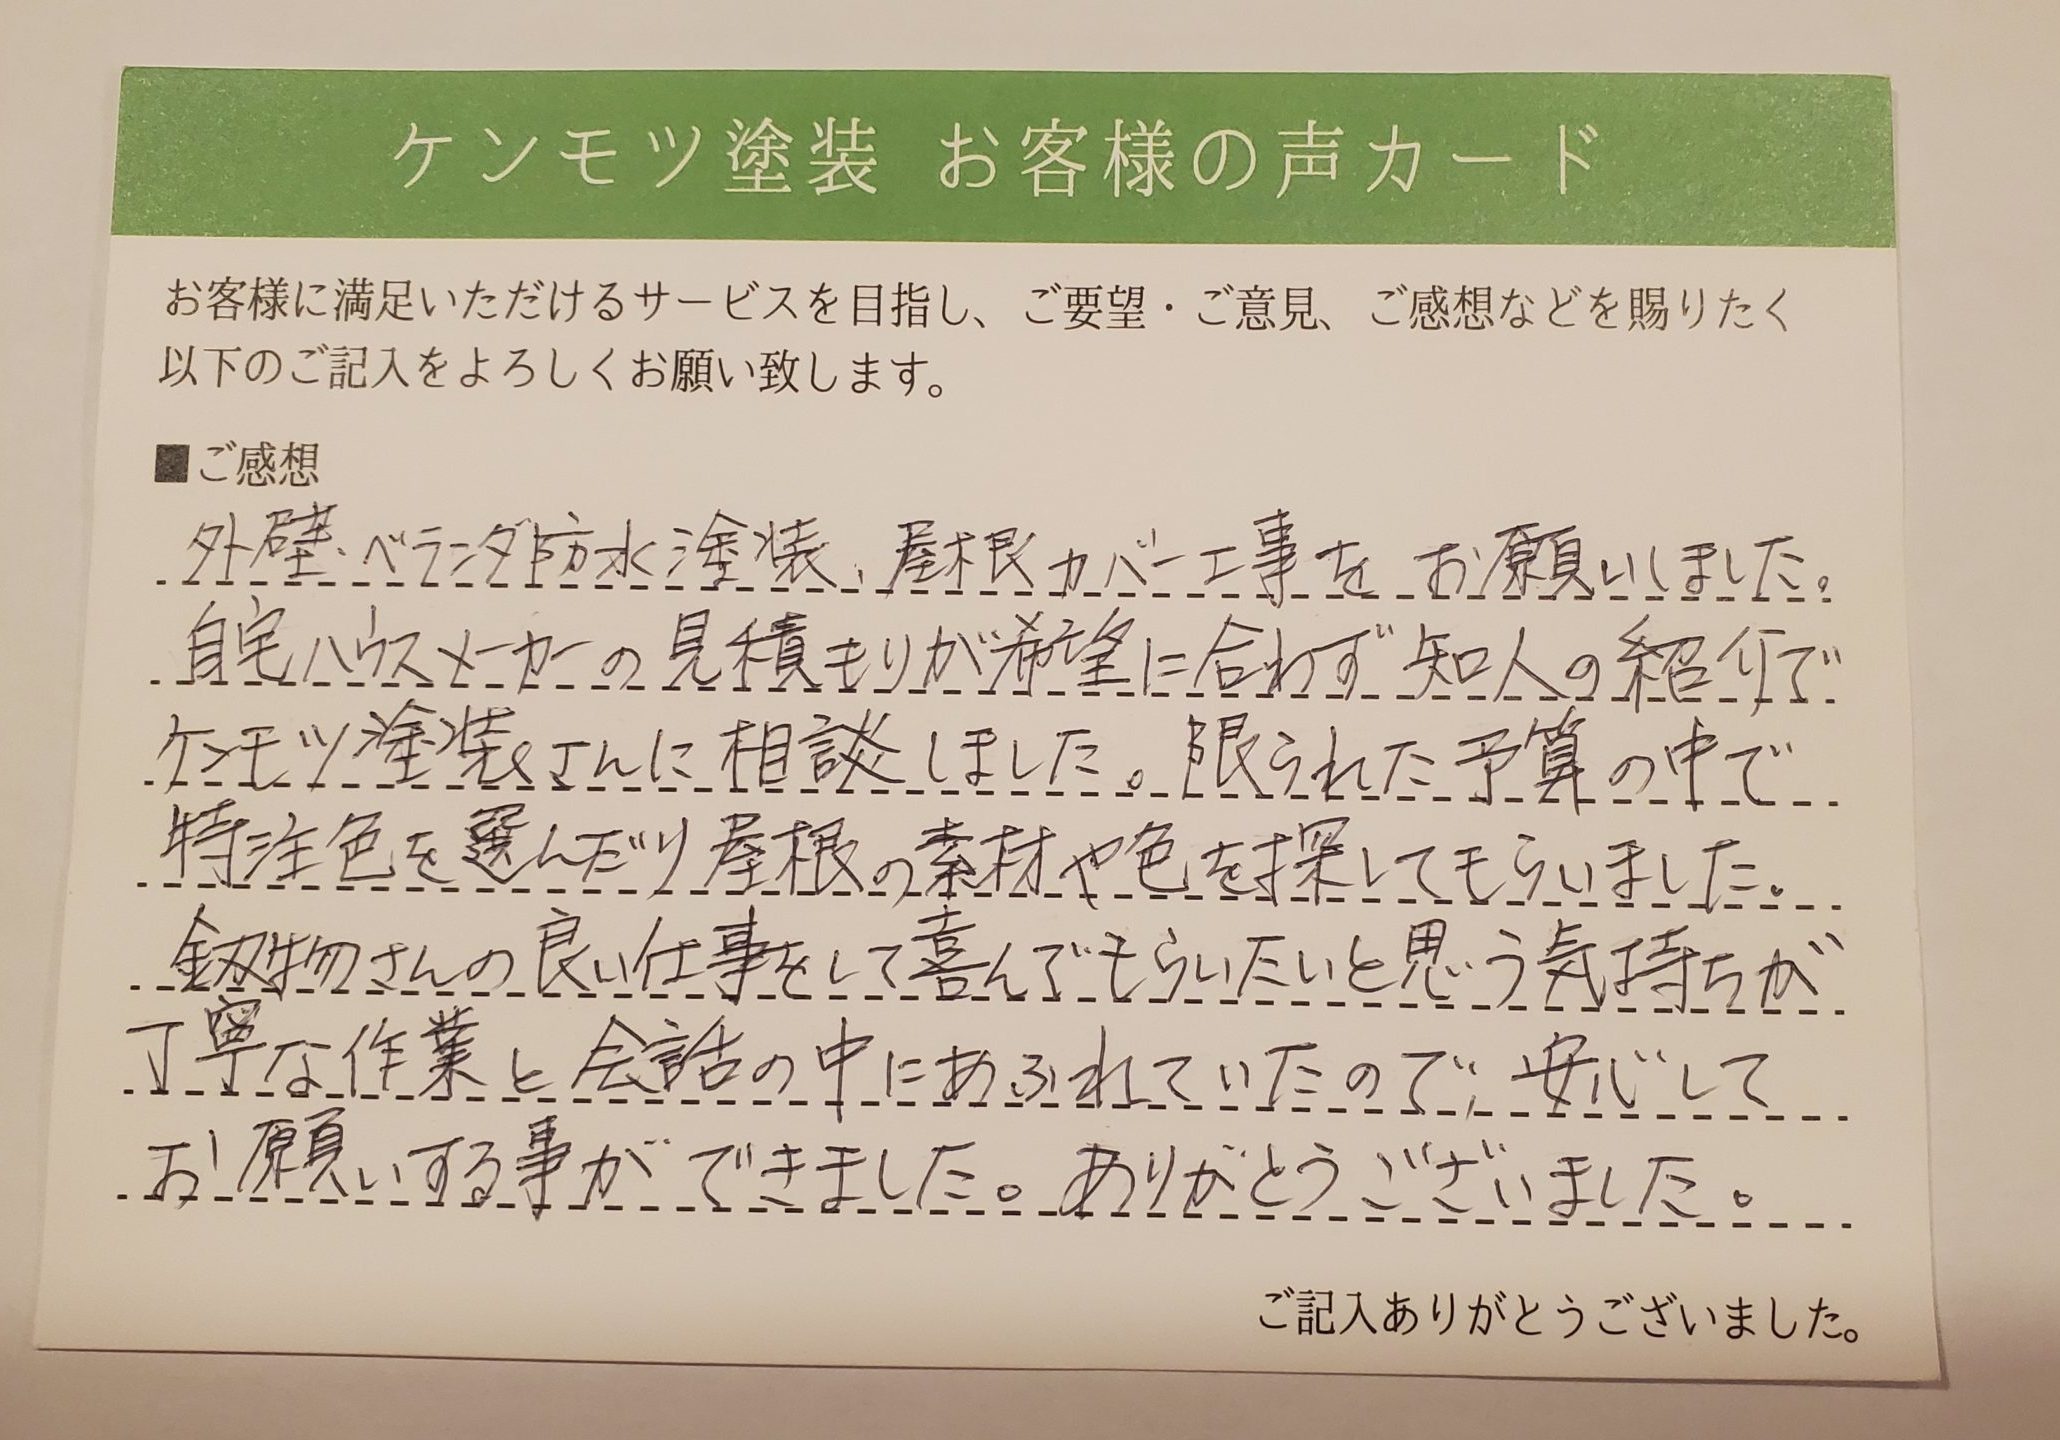 ケンモツ塗装 お客様の声カード
お客様に満足いただけるサービスを目指し、ご要望・ご意見、ご感想などを賜りたく
以下のご記入をよろしくお願い致します。
■ご感想
外壁・ベランダ防水塗装、屋根カバー工事を お願いしました。
自宅ハウスメーカーの見積もりが希望に合わず 知人の紹介で
ケンモツ塗装さんに相談しました。限られた予算の中で
特注色を選んだり屋根の素材や色を探してもらいました。
釼物さんの良い仕事をして喜んでもらいたいと思う気持ちが
丁寧な作業と会話の中にあふれていたので、安心して
お願いする事ができました。ありがとうございました。
ご記入ありがとうございました。